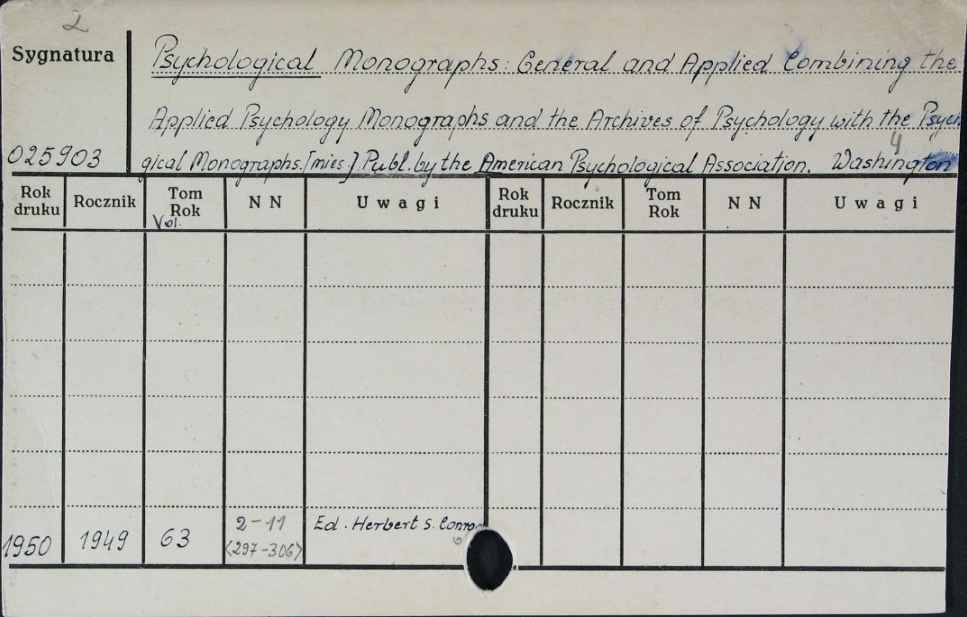 2
Sygnatura
Psychological Monographs: General and Applied Combining the
Applied Psychology Monographs and the Archives of Psychology with the Psych
4
025903
gical Monographs. [mies.] Publ. by the American Psychological Association. Washington
Rok druku Rocznik Tom Rok Vol. N N Uwagi Rok druku Rocznik Tom Rok N N Uwagi
1950 1949 63 2-11 <297-306> Ed. Herbert S. Conrad